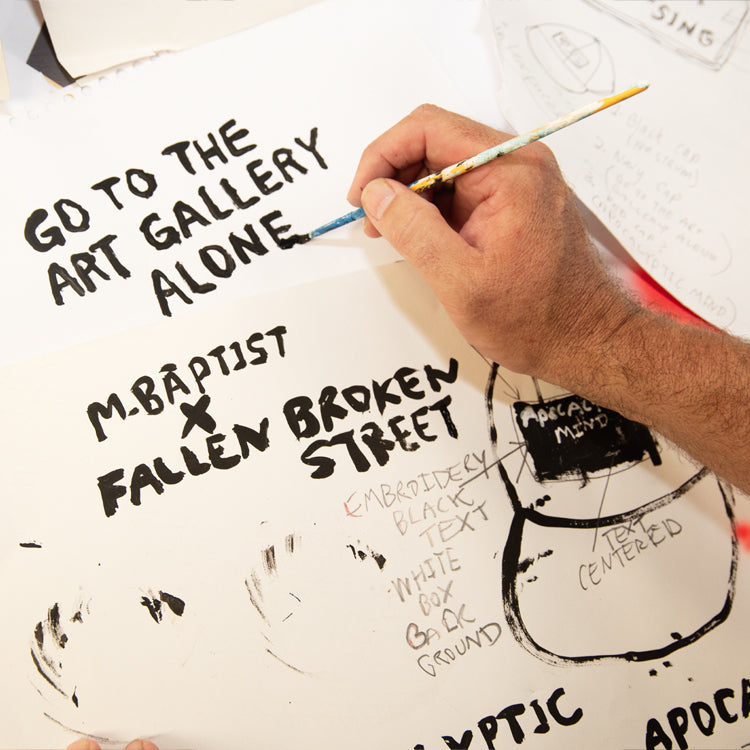 SING
1. Black cap
2. Navy cap
(GO TO THE ART
GALLERY ALONE)
GO TO THE
ART GALLERY
ALONE
M-BAPTIST
X
FALLEN BROKEN
STREET
MIND
EMBROIDERY
BLACK
TEXT
WHITE
BOX
BACK
GROUND
TEXT
CENTERED